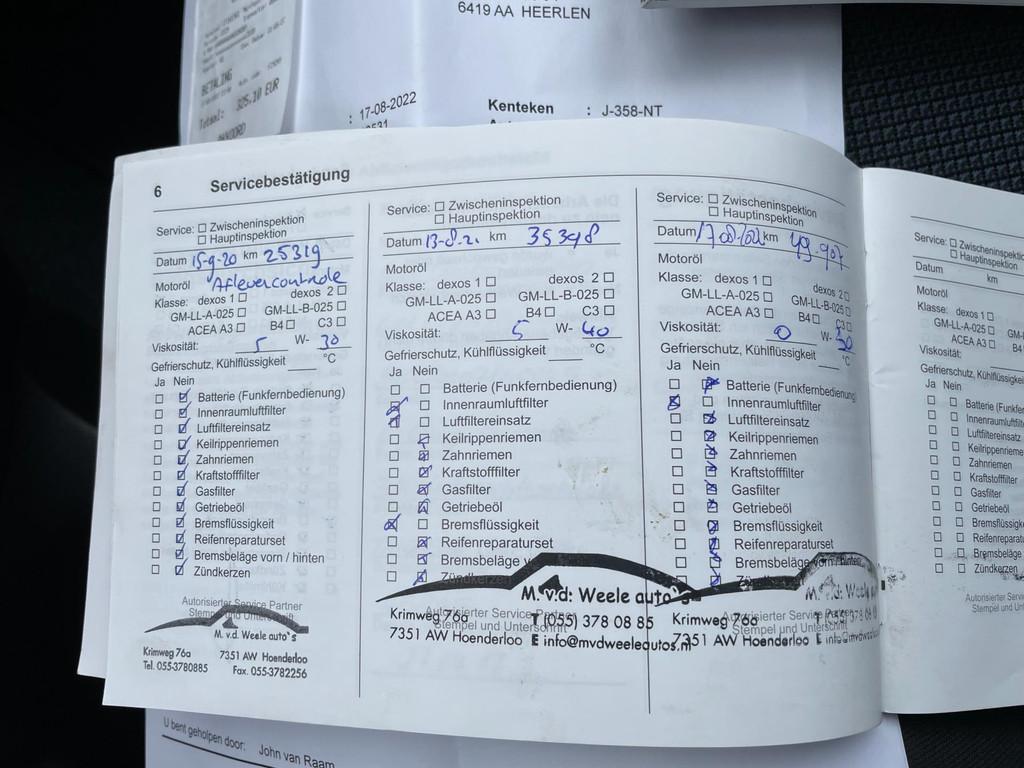 6419 AA HEERLEN
BETALING
Totaal: 325.10 EUR
: 17-08-2022
Kenteken : J-358-NT
6 Servicebestätigung
Service: ☐ Zwischeninspektion
☐ Hauptinspektion
Datum 15-9-20 km 25319
Motoröl Aflevercontrole
Klasse: dexos 1 ☐ dexos 2 ☐
GM-LL-A-025 ☐ GM-LL-B-025 ☐
ACEA A3 ☐ B4 ☐ C3 ☐
Viskosität: 5 W- 30
Gefrierschutz, Kühlflüssigkeit °C
Ja Nein
☐ ☑ Batterie (Funkfernbedienung)
☐ ☑ Innenraumluftfilter
☐ ☑ Luftfiltereinsatz
☐ ☑ Keilrippenriemen
☐ ☑ Zahnriemen
☐ ☑ Kraftstofffilter
☐ ☑ Gasfilter
☐ ☑ Getriebeöl
☐ ☑ Bremsflüssigkeit
☐ ☑ Reifenreparaturset
☐ ☑ Bremsbeläge vorn / hinten
☐ ☑ Zündkerzen
Autorisierter Service Partner
Stempel und Unterschrift
M. v.d. Weele auto's
Krimweg 76a 7351 AW Hoenderloo
Tel. 055-3780885 Fax. 055-3782256
Service: ☐ Zwischeninspektion
☐ Hauptinspektion
Datum 13-8-21 km 35398
Motoröl
Klasse: dexos 1 ☐ dexos 2 ☐
GM-LL-A-025 ☐ GM-LL-B-025 ☐
ACEA A3 ☐ B4 ☐ C3 ☐
Viskosität: 5 W- 40
Gefrierschutz, Kühlflüssigkeit °C
Ja Nein
☐ ☐ Batterie (Funkfernbedienung)
☒ ☐ Innenraumluftfilter
☒ ☐ Luftfiltereinsatz
☐ ☒ Keilrippenriemen
☐ ☒ Zahnriemen
☐ ☒ Kraftstofffilter
☐ ☒ Gasfilter
☐ ☒ Getriebeöl
☒ ☐ Bremsflüssigkeit
☐ ☒ Reifenreparaturset
☐ ☒ Bremsbeläge
☐ ☒ Zündkerzen
M. v.d. Weele auto's
Autorisierter Service Partner
Stempel und Unterschrift
Krimweg 76a T (055) 378 08 85
7351 AW Hoenderloo E info@mvdweeleautos.nl
Service: ☐ Zwischeninspektion
☐ Hauptinspektion
Datum km 49.907
Motoröl
Klasse: dexos 1 ☐ dexos 2 ☐
GM-LL-A-025 ☐ GM-LL-B-025 ☐
ACEA A3 ☐ B4 ☐ C3 ☐
Viskosität: 0 W-
Gefrierschutz, Kühlflüssigkeit °C
Ja Nein
☐ ☒ Batterie (Funkfernbedienung)
☒ ☐ Innenraumluftfilter
☐ ☒ Luftfiltereinsatz
☐ ☒ Keilrippenriemen
☐ ☒ Zahnriemen
☐ ☒ Kraftstofffilter
☐ ☒ Gasfilter
☐ ☒ Getriebeöl
☐ ☒ Bremsflüssigkeit
☐ ☒ Reifenreparaturset
☐ ☒ Bremsbeläge vorn / hinten
M. v.d. Weele
Autorisierter Service Partner
Stempel und Unterschrift
Krimweg 76a T (055) 378 08
7351 AW Hoenderloo E
Service: ☐ Zwischeninspektion
☐ Hauptinspektion
Datum km
Motoröl
Klasse: dexos 1 ☐
GM-LL-A-025 ☐
ACEA A3 ☐ B4
Viskosität:
Ja Nein
☐ ☐ Batterie
☐ ☐ Innenraumluftfilter
☐ ☐ Luftfiltereinsatz
☐ ☐ Keilrippenriemen
☐ ☐ Zahnriemen
☐ ☐ Kraftstofffilter
☐ ☐ Gasfilter
☐ ☐ Getriebeöl
☐ ☐ Reifenreparaturset
☐ ☐ Bremsbeläge
☐ ☐ Zündkerzen
Autorisierter
Stempel und
U bent geholpen door: John van Raam